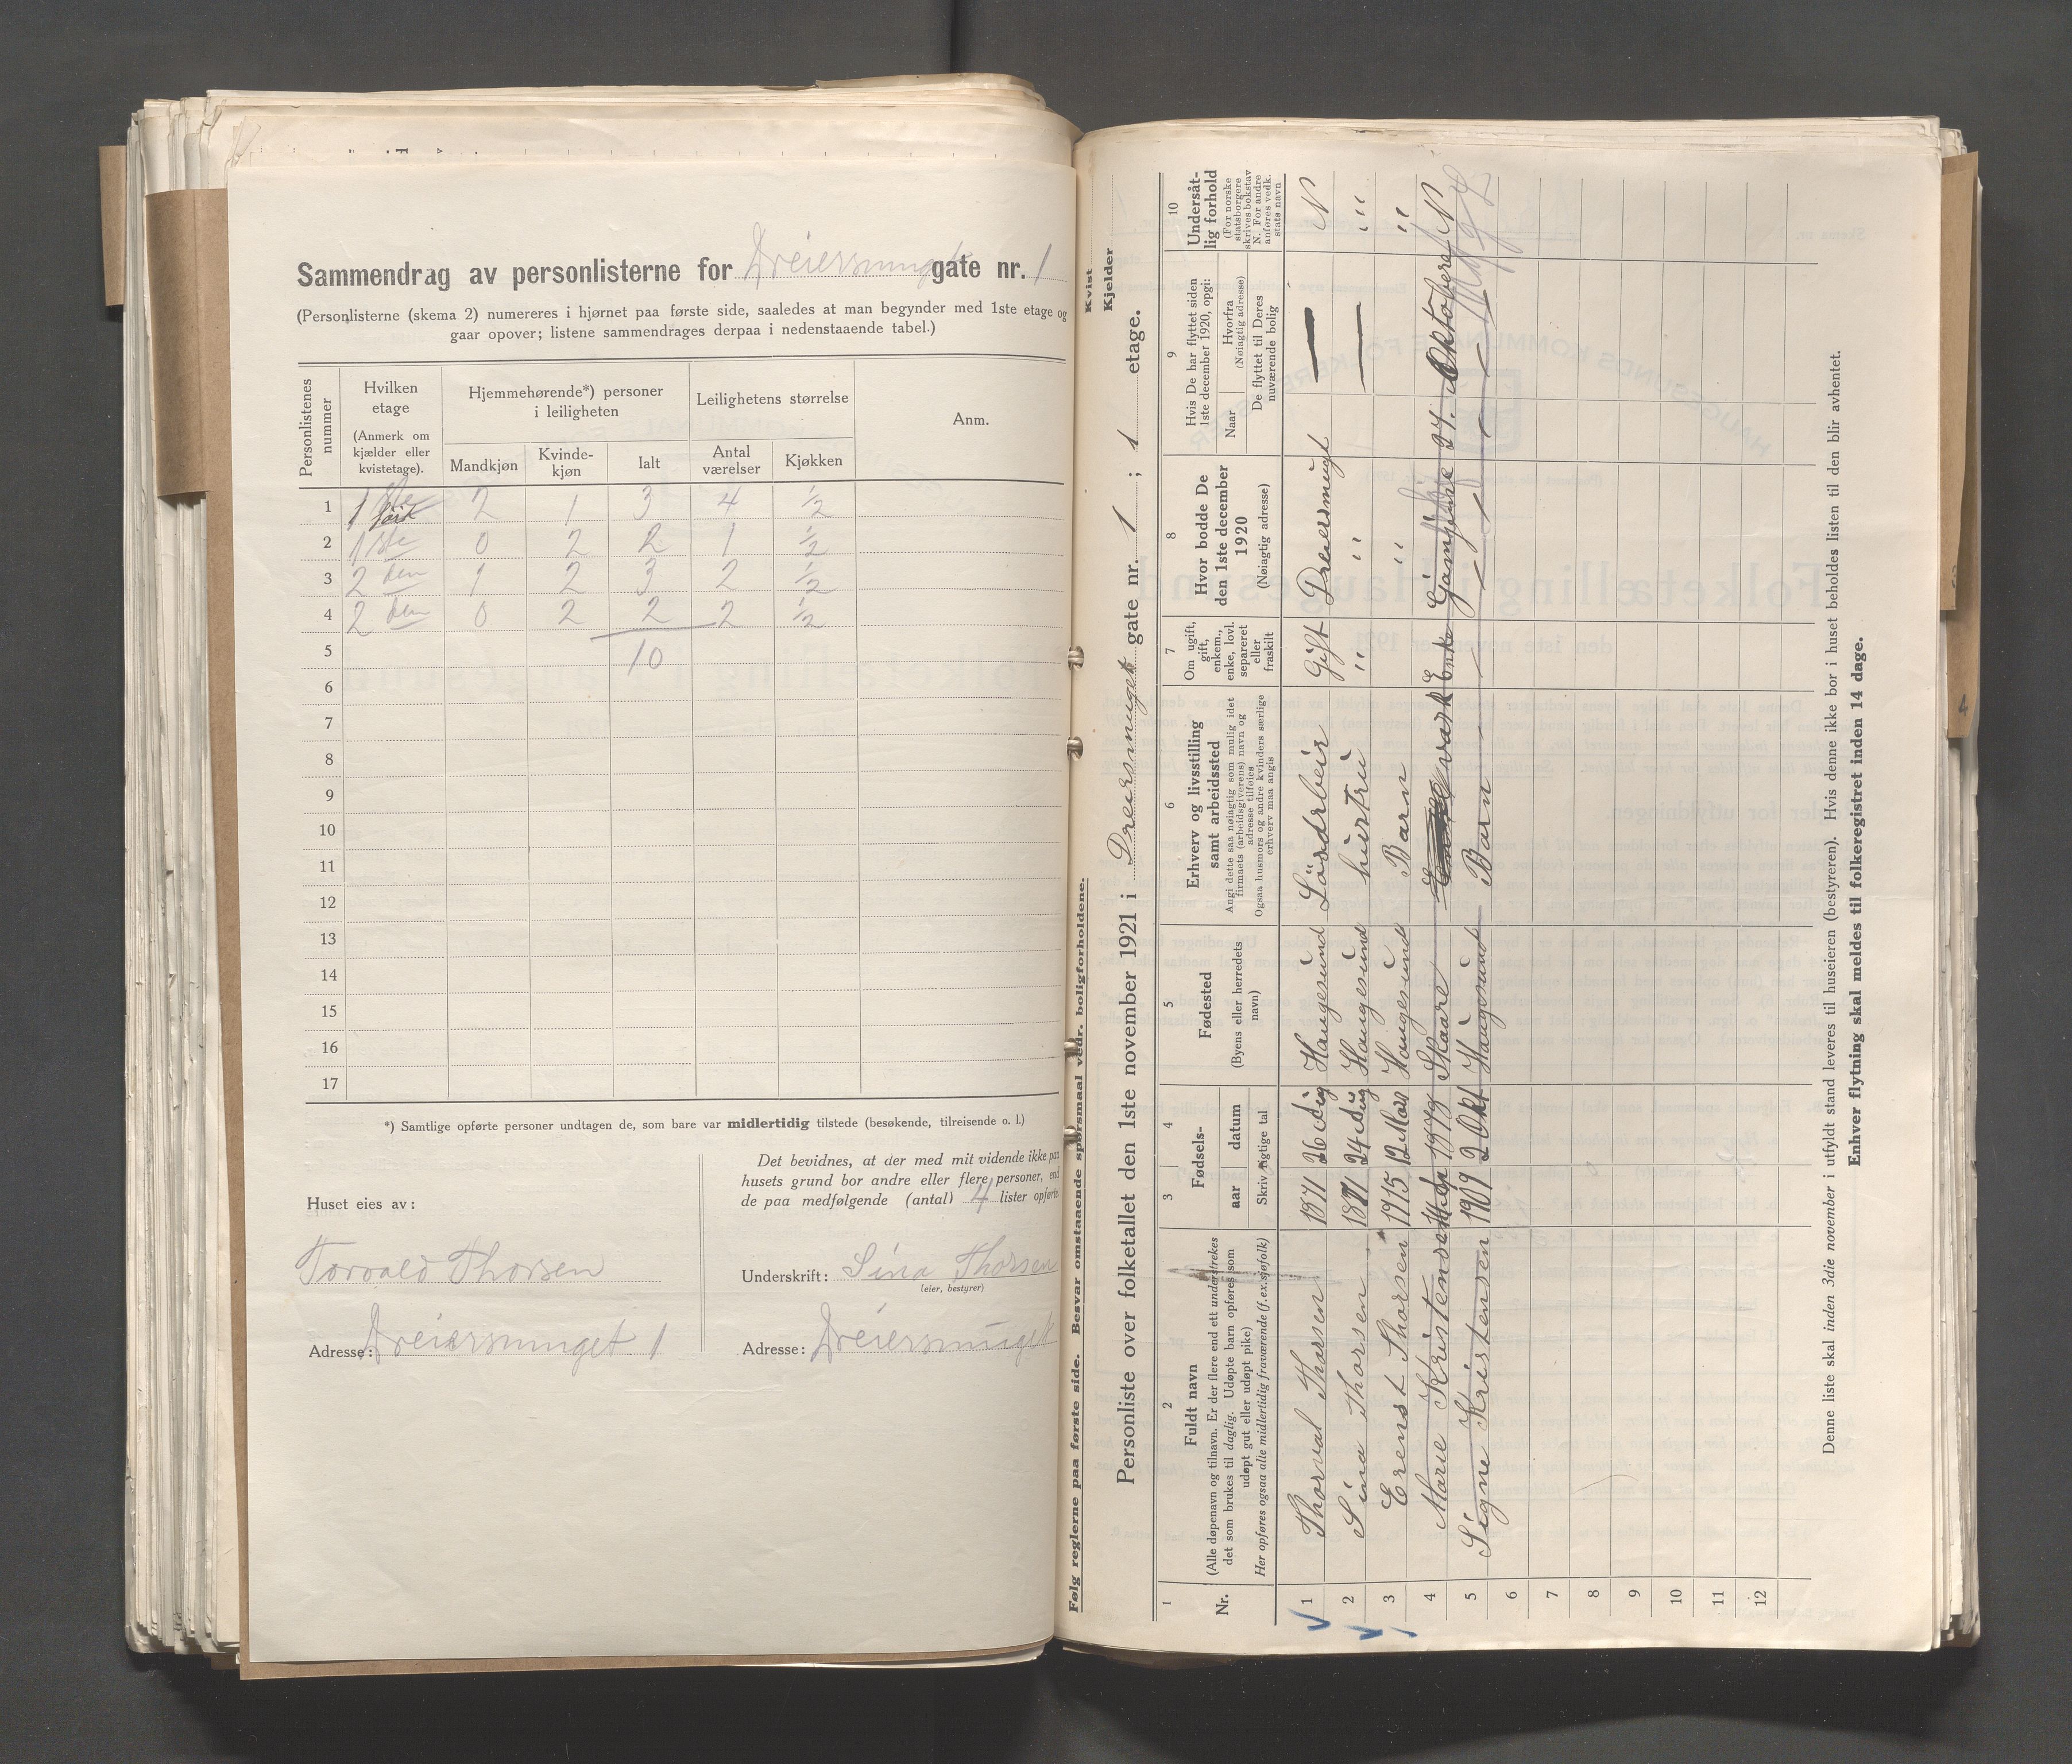 Sammendrag av personlisterne for Dreiersmuget gate nr. 1
(Personlisterne (skema 2) numereres i hjørnet paa første side, saaledes at man begynder med 1ste etage og
gaar opover; listene sammendrages derpaa i nedenstaaende tabel.)
Personlistenes nummer
Hvilken etage
(Anmerk om kjælder eller kvistetage).
Hjemmehørende*) personer i leiligheten
Leilighetens størrelse
Anm.
Mandkjøn Kvinde-kjøn Ialt Antal værelser Kjøkken
1 1 ste 2 1 3 4 1/2
2 1 ste 0 2 2 1 1/2
3 2 den 1 2 3 2 1/2
4 2 den 0 2 2 2 1/2
5 10
6
7
8
9
10
11
12
13
14
15
16
17
*) Samtlige opførte personer undtagen de, som bare var midlertidig tilstede (besøkende, tilreisende o. l.)
Huset eies av:
Torvald Thorsen
Adresse: Dreiersmuget 1
Det bevidnes, at der med mit vidende ikke paa
husets grund bor andre eller flere personer, end
de paa medfølgende (antal) 4 lister opførte
Underskrift: Sina Thorsen
(eier, bestyrer)
Adresse: Dreiersmuget
Følg reglerne paa første side. Besvar omstaaende spørsmaal vedr. boligforholdene.
Kvist
Kjelder
Personliste over folketallet den 1ste november 1921 i Dreiersmuget gate nr. 1 ; 1 etage.
1 2 3 4 5 6 7 8 9 10
Nr.
Fuldt navn
(Alle døpenavn og tilnavn. Er der flere end ett understrekes
det som brukes til daglig. Udøpte barn opføres som
udøpt gut eller udøpt pike)
Her opføres ogsaa alle midlertidig fraværende (f.ex.sjøfolk)
Fødsels-
aar datum
Skriv rigtige tal
Fødested
(Byens eller herredets navn)
Erhverv og livsstilling samt arbeidssted
Angi dette saa nøiagtig som mulig idet
firmaets (arbeidsgiverens) navn og
adresse tilføies
Ogsaa husmors og andre kvinders særlige
erhverv maa angis
Om ugift, gift, enkem., enke, lovl. separeret eller fraskilt
Hvor bodde De den 1ste december 1920
(Nøiagtig adresse)
Hvis De har flyttet siden 1ste december 1920, opgi:
Naar
Hvorfra
(Nøiagtig adresse)
De flyttet til Deres nuværende bolig
Undersåt-lig forhold
(For norske statsborgere skrives bokstav N. For andre anføres vedk. stats navn
1 Thorval Thorsen 1871 26 Aug Haugesund Lösdrbeir Gift Dreiersmugt — N
2 Sina Thorsen 1871 24 Aug Haugesund hustru " " — "
3 Erenst Thorsen 1915 12 Mars Haugesund Barn " "
4 Marie Kristensen 1879 Skaare Enke 27. Oktober N
5 Signe Kristensen 1909 2 Okt Haugesund Barn
6
7
8
9
10
11
12
Denne liste skal inden 3die november i utfyldt stand leveres til huseieren (bestyreren). Hvis denne ikke bor i huset beholdes listen til den blir avhentet.
Enhver flytning skal meldes til folkeregistret inden 14 dage.